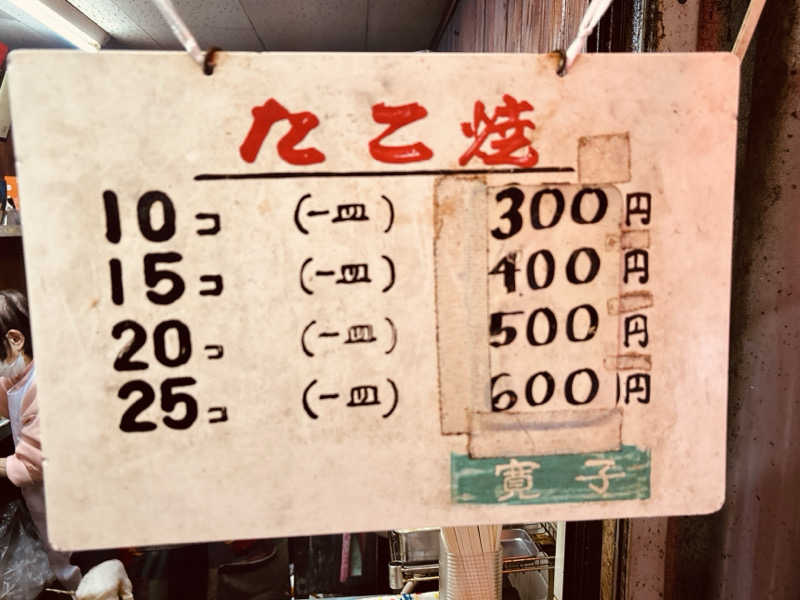 たこ焼
10コ (一皿) 300円
15コ (一皿) 400円
20コ (一皿) 500円
25コ (一皿) 600円
寛子